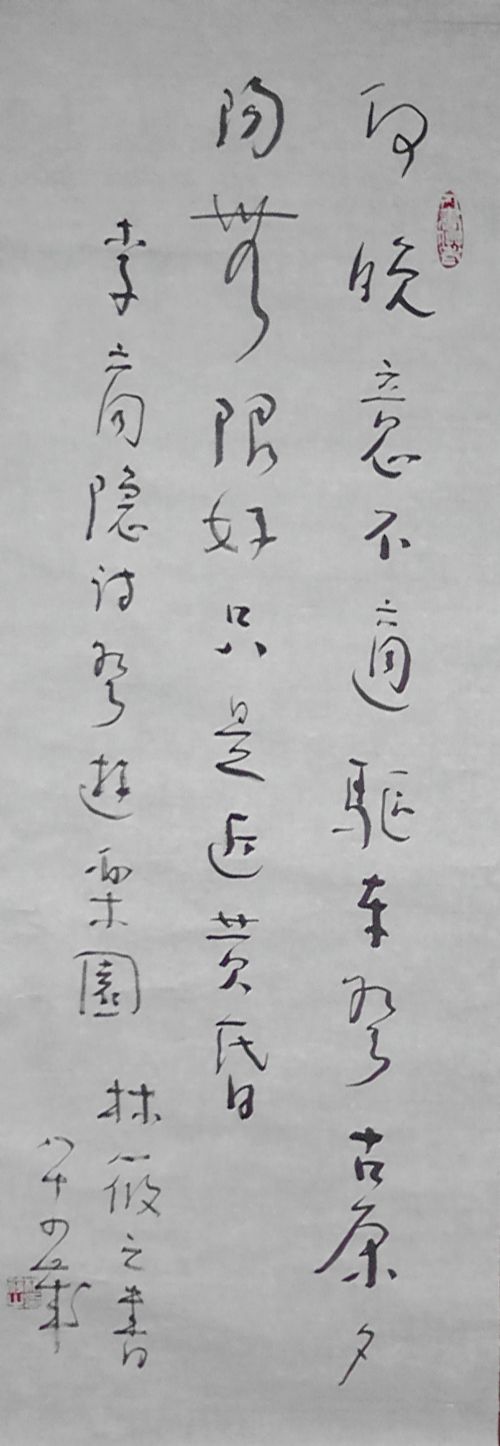 向晚意不適驅車登古原夕
陽無限好只是近黄昏
李商隐詩登遊樂園
林筱之書
八十四歲